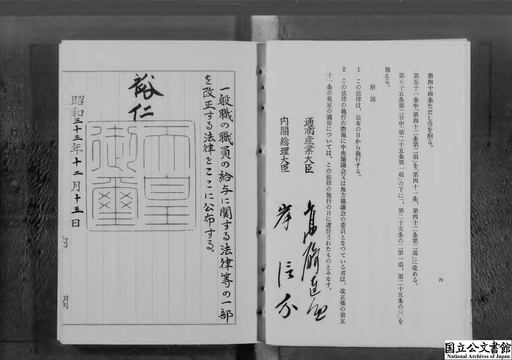 第四十四条ただし書を削る。
第五十一条中「第四十二条第二項」を「第四十一条、第四十二条第二項」に改める。
第五十五条第二号中「第二十五条第一項」の下に「、第二十五条の二第一項、第二十五条の三」を
加える。
附則
1 この法律は、公布の日から施行する。
2 この法律の施行の際現に中央協議会又は地方協議会の委員となつている者は、改正後の第五
十一条の規定の適用については、この法律の施行の日に選任されたものとみなす。
通商産業大臣
内閣総理大臣 岸信介
四
一般職の職員の給与に関する法律等の一部
を改正する法律をここに公布する。
裕仁
天皇御璽
昭和三十三年十二月十五日
内閣
国立公文書館
National Archives of Japan